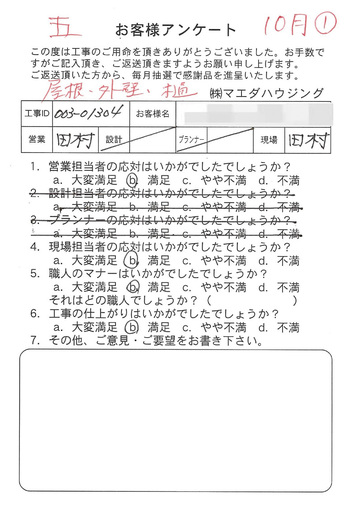 五 お客様アンケート 10月①
この度は工事のご用命を頂きありがとうございました。お手数で
すがご記入頂き、ご返送頂きますようお願い申し上げます。
ご返送頂いた方から、毎月抽選で感謝品を進呈いたします。
屋根・外壁・樋 ㈱マエダハウジング
工事ID 003-01304 お客様名
営業 田村 設計 プランナー 現場 田村
1. 営業担当者の応対はいかがでしたでしょうか？
a. 大変満足 b. 満足 c. やや不満 d. 不満
2. 設計担当者の応対はいかがでしたでしょうか？
a. 大変満足 b. 満足 c. やや不満 d. 不満
3. プランナーの応対はいかがでしたでしょうか？
a. 大変満足 b. 満足 c. やや不満 d. 不満
4. 現場担当者の応対はいかがでしたでしょうか？
a. 大変満足 b. 満足 c. やや不満 d. 不満
5. 職人のマナーはいかがでしたでしょうか？
a. 大変満足 b. 満足 c. やや不満 d. 不満
それはどの職人でしょうか？（ ）
6. 工事の仕上がりはいかがでしたでしょうか？
a. 大変満足 b. 満足 c. やや不満 d. 不満
7. その他、ご意見・ご要望をお書き下さい。